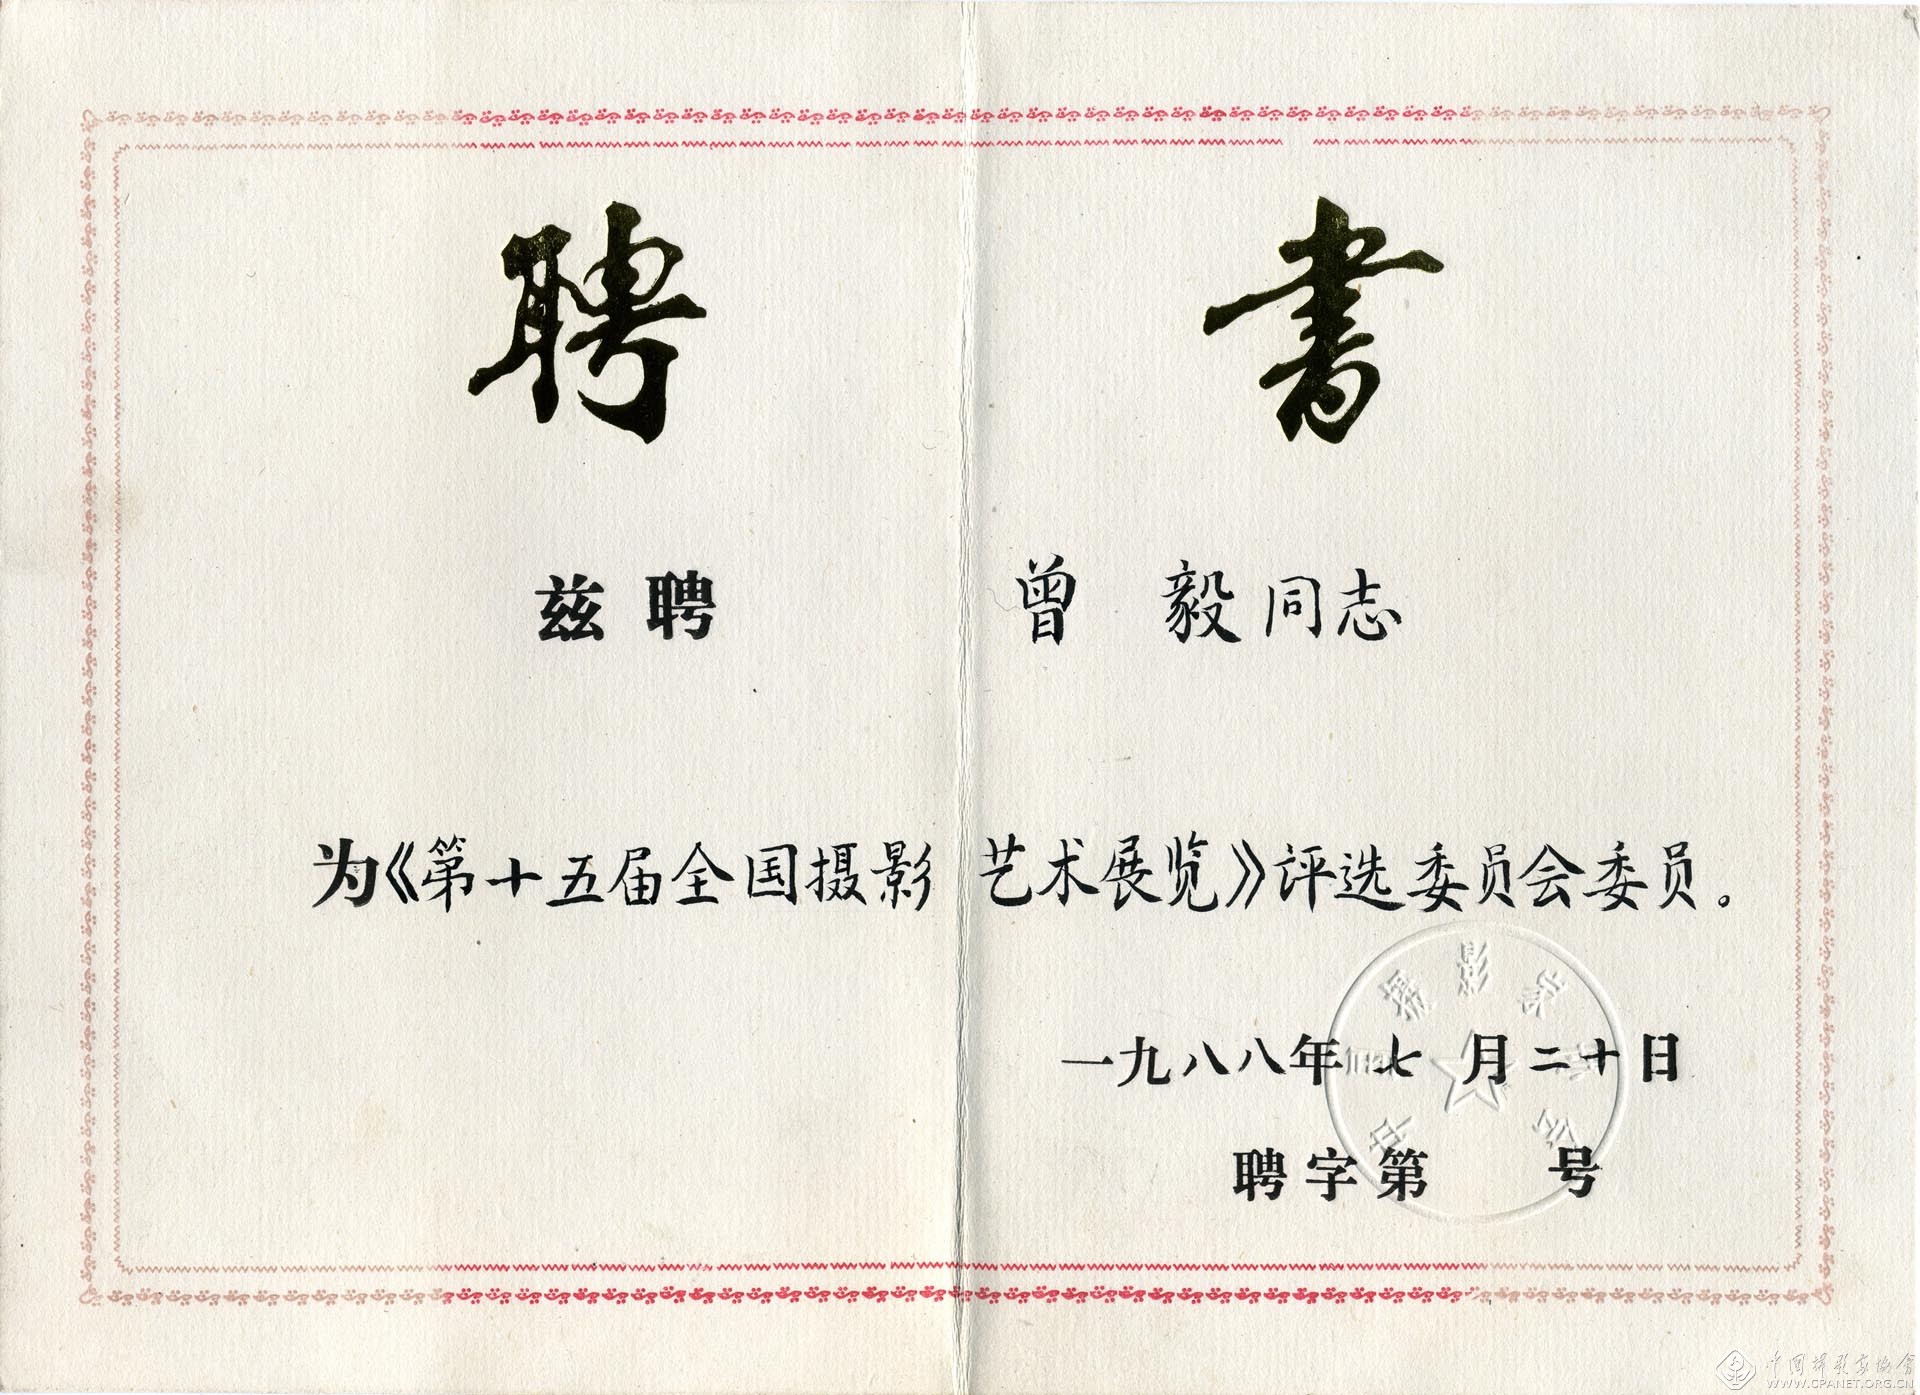 聘书
兹聘 曾毅同志
为《第十五届全国摄影艺术展览》评选委员会委员。
一九八八年七月二十日
聘字第 号
中国摄影家协会
中国摄影家协会
WWW.CPANET.ORG.CN